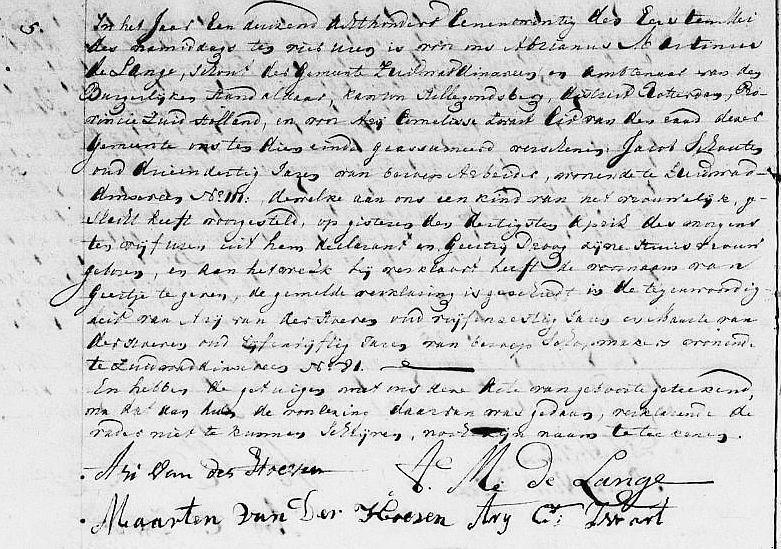 5.
In het Jaar Een duizend achthonderd Eenentwintig des Eersten Mei
des namiddags ten vier uren is voor ons Adrianus Martinus
de Lange, Schout der Gemeente Zuidwaddinxveen, en ambtenaar van den
Burgerlijken Stand aldaar, kanton Hillegondsberg, district Rotterdam, Pro-
vincie Zuid Holland, en voor Arij Cornelisse Zwart Lid van den raad dezer
Gemeente ons ten dien einde geassumeerd verschenen Jacob Schouten
oud drieendertig Jaren van beroep Arbeider, wonende te Zuidwad-
dinxveen No. 111. dewelke aan ons een kind van het vrouwelijk, ge-
slacht heeft voorgesteld, op gisteren den dertigsten April des morgens
ten vijf uren uit hem declarant en Geertje Droog zijne Huisvrouw
geboren, en aan hetwelk hij verklaart heeft de voornaam van
Geertje te geven, de gemelde verklaring is geschied in de tegenwoordig-
heid van Arij van der Hoeven oud Jaren en Maarten van
der Hoeven oud Jaren van beroep wonende
te Zuidwaddinxveen No. 81.
En hebben de getuigen met ons deze Acte van geboorte geteekend,
na dat aan hun de voorlezing daarvan was gedaan, verklarende de
vader niet te kunnen Schrijven, noch zijn naam te teekenen.
Ari Van der Hoeven A. M. de Lange
Maarten Van Der Hoeven Ary Cs. Zwart